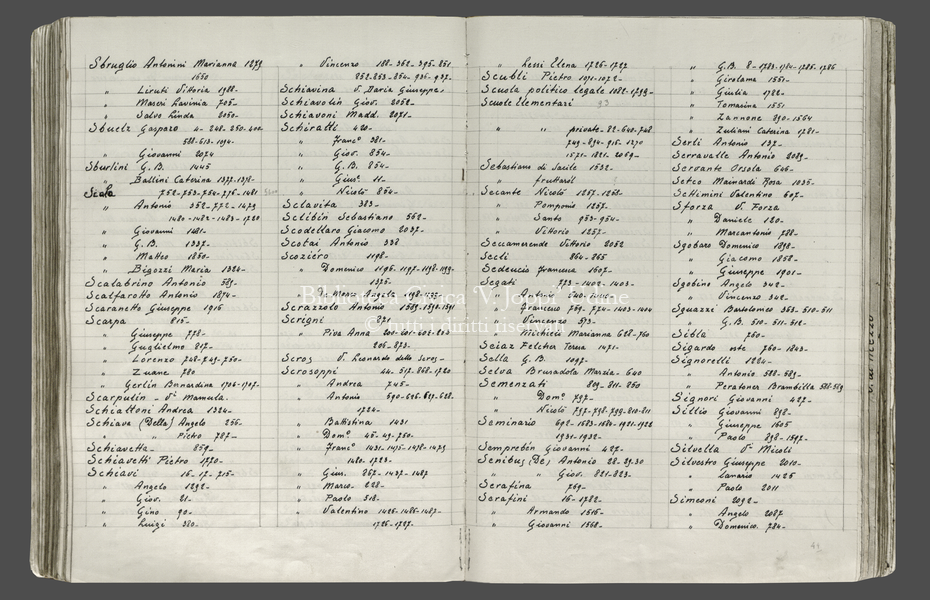 Sbruglio Antonini Marianna 1279
1650
" Liruti Vittoria 1988-
" Maseri Lavinia 705-
" Salvo Linda 2050-
Sbuelz Gaspare 4-248-250-400-
588-613-1094-
" Giovanni 2074
Sburlini G.B. 1445
" Ballini Caterina 1377-1378-
Scala 752-753-754-776-1481
" Antonio 352-772-1479
1480-1482-1483-1720
" Giovanni 1481-
" G.B. 1337-
" Matteo 1850-
" Bigozzi Maria 1324-
Scalabrino Antonio 589-
Scalfarotto Antonio 1874-
Scaranetto Giuseppe 1916
Scarpa 815-
" Giuseppe 778-
" Guglielmo 817-
" Lorenzo 748-749-750-
" Zuane 780
" Gerlin Bernardina 1706-1707-
Scarpulin - Vi Marnula.
Schiattoni Andrea 1324-
Schiava (Della) Angelo 256-
" " Pietro 787-
Schiavetta- 859-
Schiavetti Pietro 1770-
Schiavi 16-17-715-
" Angelo 1292-
" Giov. 21-
" Gino 90-
" Luigi 380-
" Vincenzo 188-362-395-851
852-853-854-936-937-
Schiavina V. Daria Giuseppe.
Schiavolin Giov. 2052-
Schiavoni Madd. 2071-
Schiratti 420-
" Franco 381-
" Giov. 854-
" G.B. 854-
" Gius. 11-
" Nicolò 854-
Sclavita 383-
Sclibin Sebastiano 562-
Scodellaro Giacomo 2037-
Scotai Antonio 338
Scoziéro 1198-
" Domenico 1196-1197-1198-1199-
1375-
Scrazzolo Antonio 1589-1590-1591
Scrigni 271
" Piva Anna 201-202-203-
206-273-
Scros V. Leonardo dello Scros-
Scrosoppi 44-517-868-1720
" Andrea 745-
" Antonio 590-696-697-698-
1724-
" Battistina 1431
" Domo 45-49-750-
" Franco 1431-1475-1478-1479
1480-1723-
" Gius. 267-1437-1487
" Marco 228-
" Paolo 518-
" Valentino 1425-1486-1487-
1726-1727-
" Lessi Elena 1726-1727
Scubli Pietro 1071-1072-
Scuola politico legale 1082-1799-
Scuole Elementari 93
" " private-82-640-748
749-894-916-1270
1571-1821-2069-
Sebastiano di Sacile 1532-
Secante Nicolò 1257-1268-
" Pomponio 1257-
" Santo 953-954-
" Vittorio 1257-
Seccamerende Vittorio 2052
Secli 864-865
Sedeucio Francesco 1607-
Segati 773-1402-1403-
" Antonio 640-1404-
" Francesco 769-774-1403-1404
" Vincenzo 573-
" Michieli Marianna 628-750
Seiaz Felcher Teresa 1471-
Sella G.B. 1097-
Selva Brusadola Marzia- 640
Semenzati 809-811-850
" Domo 797-
" Nicolò 797-798-799-810-811
Seminario 692-1583-1580-1921-1928
1931-1932-
Semprebòn Giovanni 427-
Senibus (De) Antonio 28-29-30
" " Giov. 821-823-
Serafina 769-
Serafini 16-1782-
" Armando 1515-
" Giovanni 1558-
" G.B. 8-1783-1784-1785-1786
" Girolama 1551-
" Giulia 1782-
" Tomasina 1551
" Zannone 890-1564
" Zuliani Caterina 1781-
Serli Antonio 137-
Serravalle Antonio 2089-
Servante Orsola 646-
Setco Mainardi Rosa 1035-
Settimini Valentino 607-
Sforza V. Forza
" Daniele 120-
" Marcantonio 788-
Sgobaro Domenico 1898-
" Giacomo 1858-
" Giuseppe 1901-
Sgobino Angelo 342-
" Vincenzo 342-
Sguazzi Bartolomeo 363-510-511
" G.B. 510-511-512-
Sibla 750-
Sigardo oste 750-1843-
Signorelli 1224-
" Antonio 588-589-
" Peratoner Brambilla 588-589
Signori Giovanni 427-
Sillio Giovanni 898-
" Giuseppe 1605
" Paolo 898-1597-
Silvella Vi Micoli
Silvestro Giuseppe 2010-
" Canario 1425
" Paolo 2011
Simeoni 2092-
" Angelo 2087
" Domenico 784-
Biblioteca Civica "V. Joppi" Udine
© tutti i diritti riservati